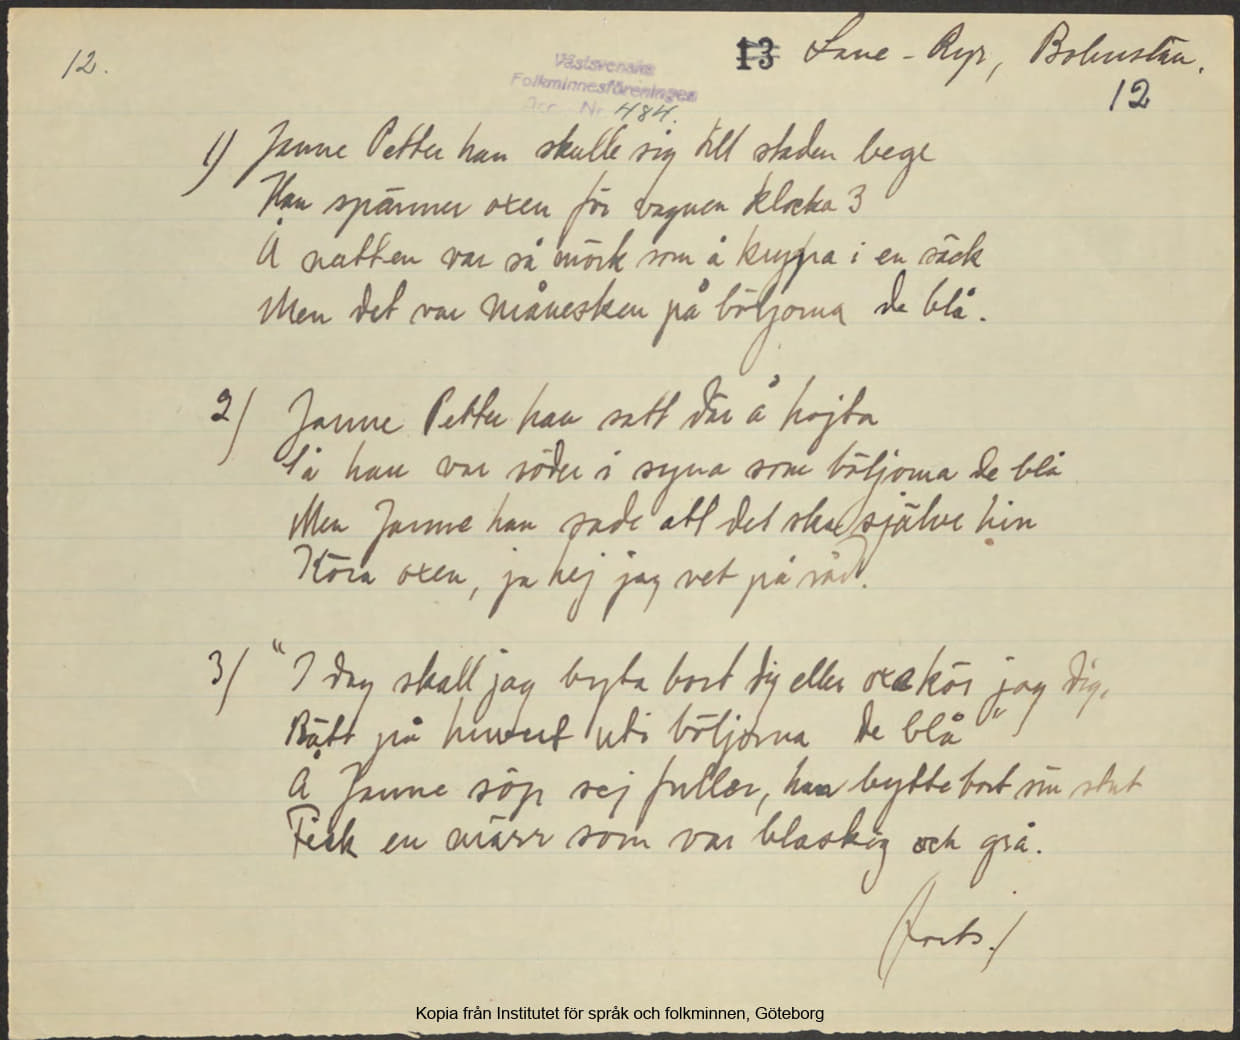 12.
13 Lane-Ryr, Bohuslän.
12
Västsvenska
Folkminnesföreningen
Acc. Nr 484.
1) Janne Petter han skulle sig till staden bege
Han spänner oxen för vagnen klocka 3
Å natten var så mörk som å krypa i en säck
Men det var månesken på böljorna de blå.
2) Janne Petter han satt där å hojta
Så han var söder i syna som böljorna de blå
Men Janne han sade att det ska själve hin
Köra oxen, ja nej jag vet på råd.
3) "I dag skall jag byta bort dig eller oxe kör jag dig,
Rätt på huvut uti böljorna de blå"
Å Janne söp sej fuller, han bytte bort sin stut
Fick en märr som var blaskig och grå.
(forts.)
Kopia från Institutet för språk och folkminnen, Göteborg